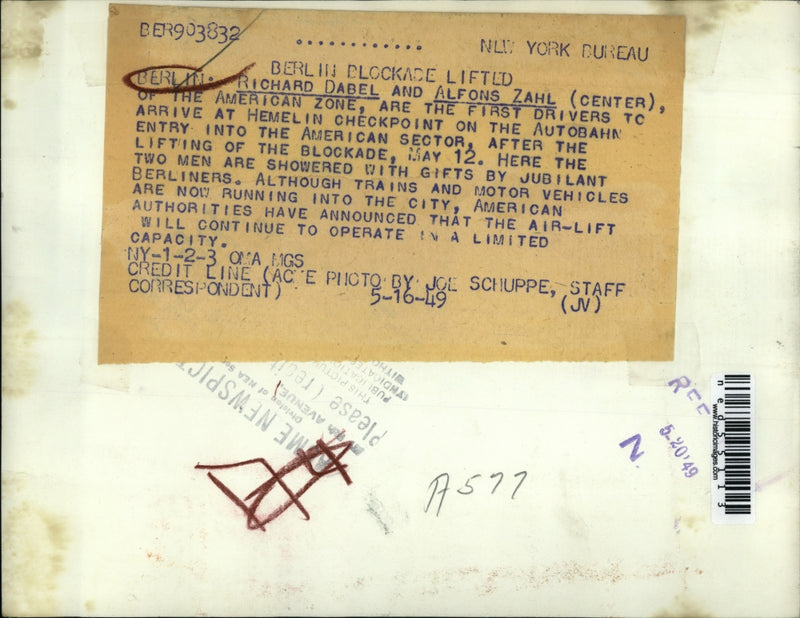 BER903832
............. NEW YORK BUREAU
BERLIN BLOCKADE LIFTED
BERLIN: RICHARD DABEL AND ALFONS ZAHL (CENTER),
OF THE AMERICAN ZONE, ARE THE FIRST DRIVERS TO
ARRIVE AT HEMELIN CHECKPOINT ON THE AUTOBAHN
ENTRY INTO THE AMERICAN SECTOR, AFTER THE
LIFTING OF THE BLOCKADE, MAY 12. HERE THE
TWO MEN ARE SHOWERED WITH GIFTS BY JUBILANT
BERLINERS. ALTHOUGH TRAINS AND MOTOR VEHICLES
ARE NOW RUNNING INTO THE CITY, AMERICAN
AUTHORITIES HAVE ANNOUNCED THAT THE AIR-LIFT
WILL CONTINUE TO OPERATE IN A LIMITED
CAPACITY.
NY-1-2-3 OMA MGS
CREDIT LINE (ACME PHOTO BY JOE SCHUPPE, STAFF
CORRESPONDENT) 5-16-49 (JV)
ACME NEWSPICT
Division of NEA
AVENUE,
Please
THIS PICTU
PUBLICAT
SYNDICATE
WITHO
REF
5-20'49
N.
A577
ned55113
www.historicimages.com